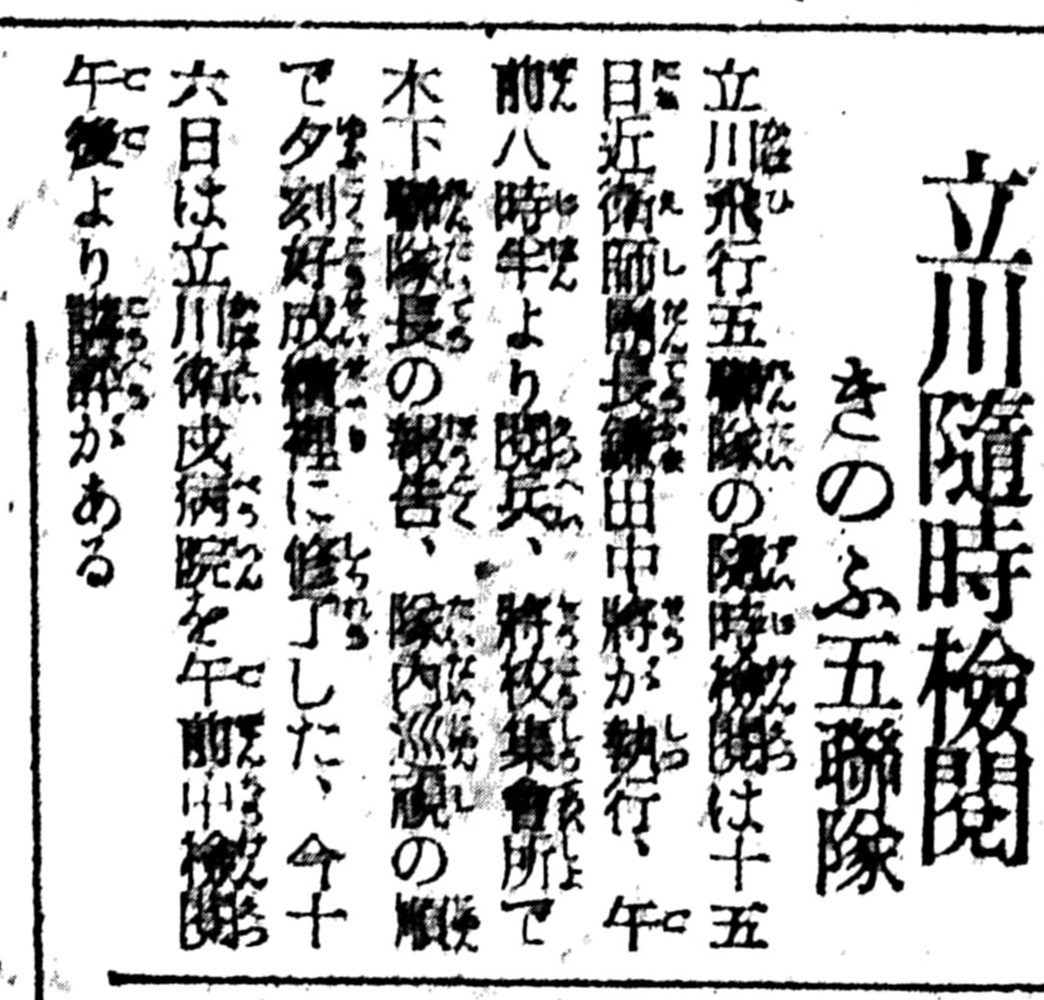 立川隨時檢閱
きのふ五聯隊
立川飛行五聯隊の隨時檢閱は十五
日近衞師團長鎌田中將が執行、午
前八時半より閱兵、將校集會所で
木下聯隊長の報告、隊內巡視の順
で夕刻好成績裡に修了した、今十
六日は立川衞戍病院を午前中檢閱
午後より講評がある